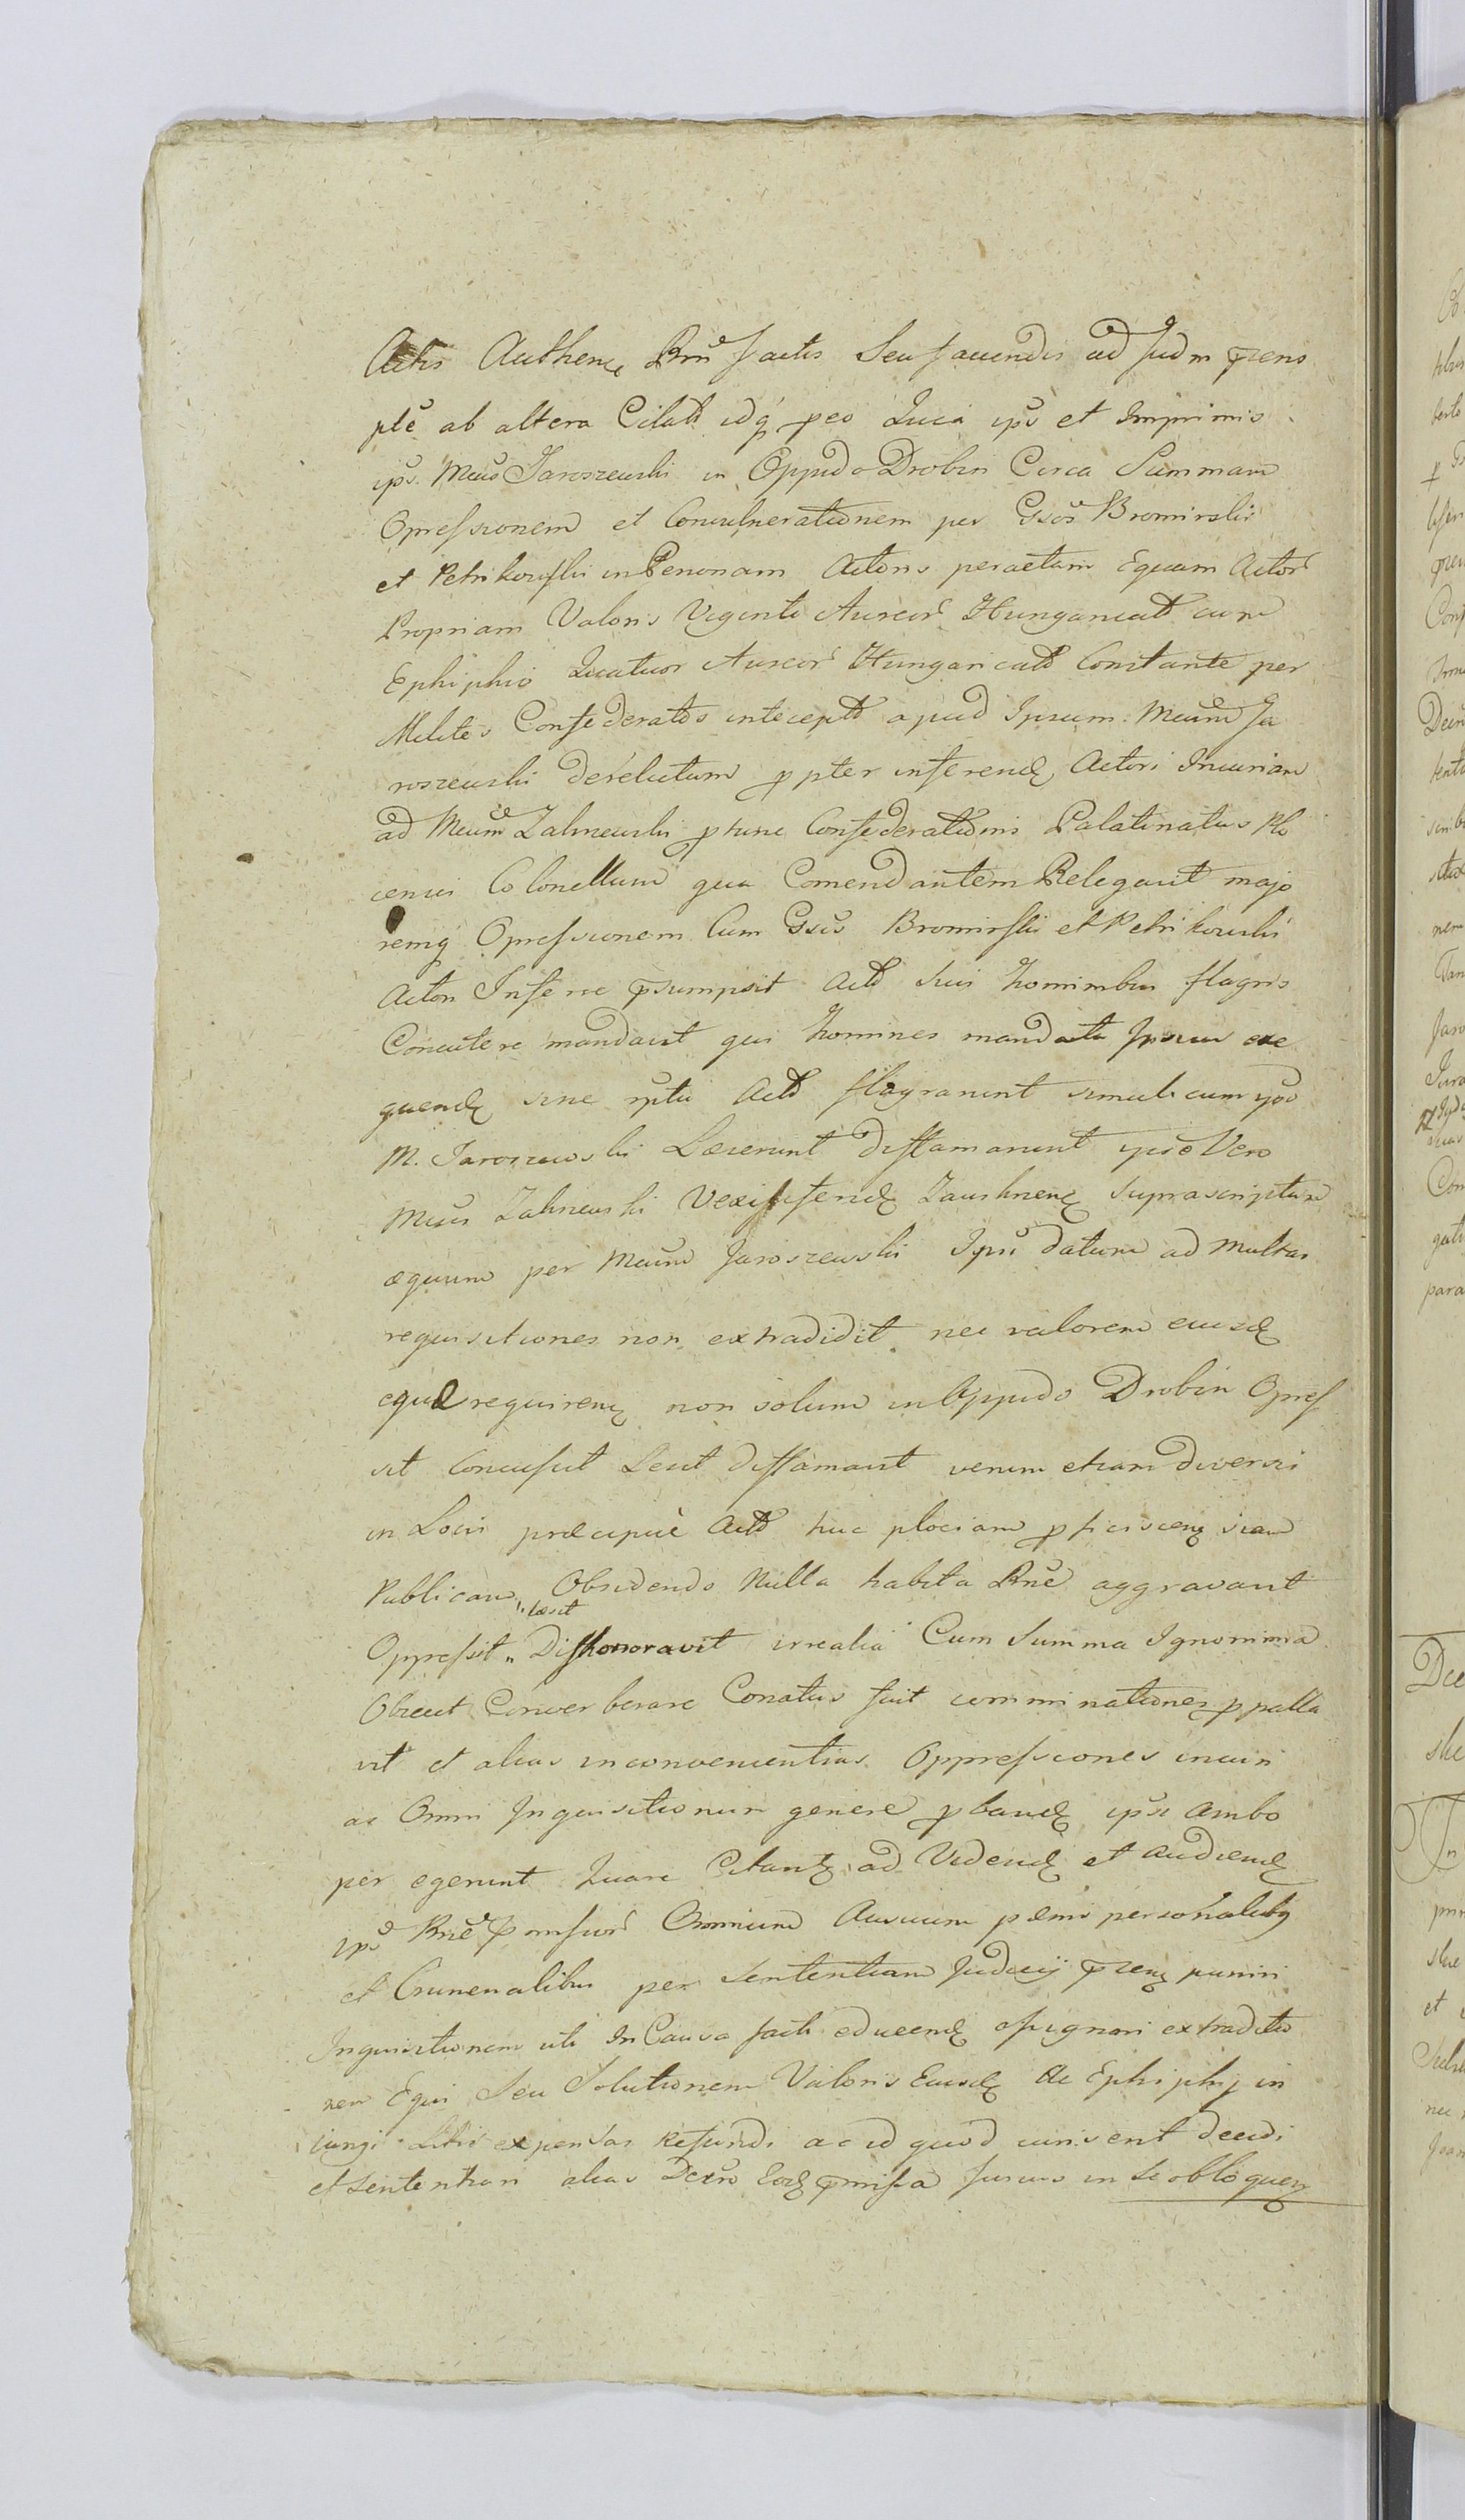 Actis Authenᶎ Rnĕ factis Seu faciendis ad Judm p̄rens
ptĕ ab altera Citatt̄ idq̨ peo Quia ips̆ et Imprimis
ips̆. Mcus Jaroszewski in Oppido Drobin Circa Summam
Opressionem et Convulnerationem per Gsos̆ Bromirski
et Petrikowski in Personam Actoris peractam Equum Actor̆
Propriam Valoris Viginti Aureor̆ Hungaricat̄ cum
Ephiphio Quatuor Aureor̆ Hungaricalt̄ Constante per
Milites Confederatos intecept̄ apud Ipsum Mcum̆ Ja
roszewski derelictum ꝓpter inferendᶎ Actori Iniuriam
ad Mcum̆ Zalmewski ꝓ tunc Confederationis Palatinatus Plo
censis Colonellum qua Comendantem Relegavit majo
remq̨ Opressionem Cum Gsis̆ Bromirski et Petrikowski
Actori Inferre p̄sumpsit Actt̄ suis hominibus flagris
Concutere mandavit qui homines mandata Ipsius exe
quendᶎ sine rp̆tu Actt̄ flagrarunt simul cum yps̆o
M. Jaroszewski Læserunt diffamarunt ipse Vero
Mcus Zalmewski Vexilliferidᶎ Zauskrenᶎ suprascriptum
æquum per Mcum̆ Jaroszewski Ipsĭ datum ad multas
requisitiones non extradidit nec valorem eiusdᶎ
equi requirenᶎ non solum in Oppido Drobin Opres
sit Concussit Lesit diffamavit verum etiam diversis
in Locis præcipuè Actt̄ huc plociam ꝓficiscenᶎ viam
Publicam Obsidendo Nulla habita Rnĕ aggravavit
læsit
Oppressit „ Dishonoravit irrealia Cum Summa Ignominia
Obiecit Converberare Conatus fuit comminationes ꝓpalla
vit et alias inconvenientias Oppressiones iniuri
as Omni Inquisitionum genere ꝓbandᶎ ipsĭ ambo
per egerunt Quare Citantᶎ ad Videndᶎ et audiendᶎ
ips̆ Rnĕ p̄missor̆ Omnium Ausuum pænis personalibq̨
et Criminalibus per Sententiam Judicij p̄renᶎ puniri
Inquisitionem uti In Causa facti educendᶎ assignari extraditio
nem Equi Seu Solutionem Valoris Eiusdᶎ ac Ephiphij in
iungi Litis expensas Refundi ac id quod iuris erit decidi
et sententiari alias Decrŏ Eodᶎ p̄missa sursus in se obloquenᶎ